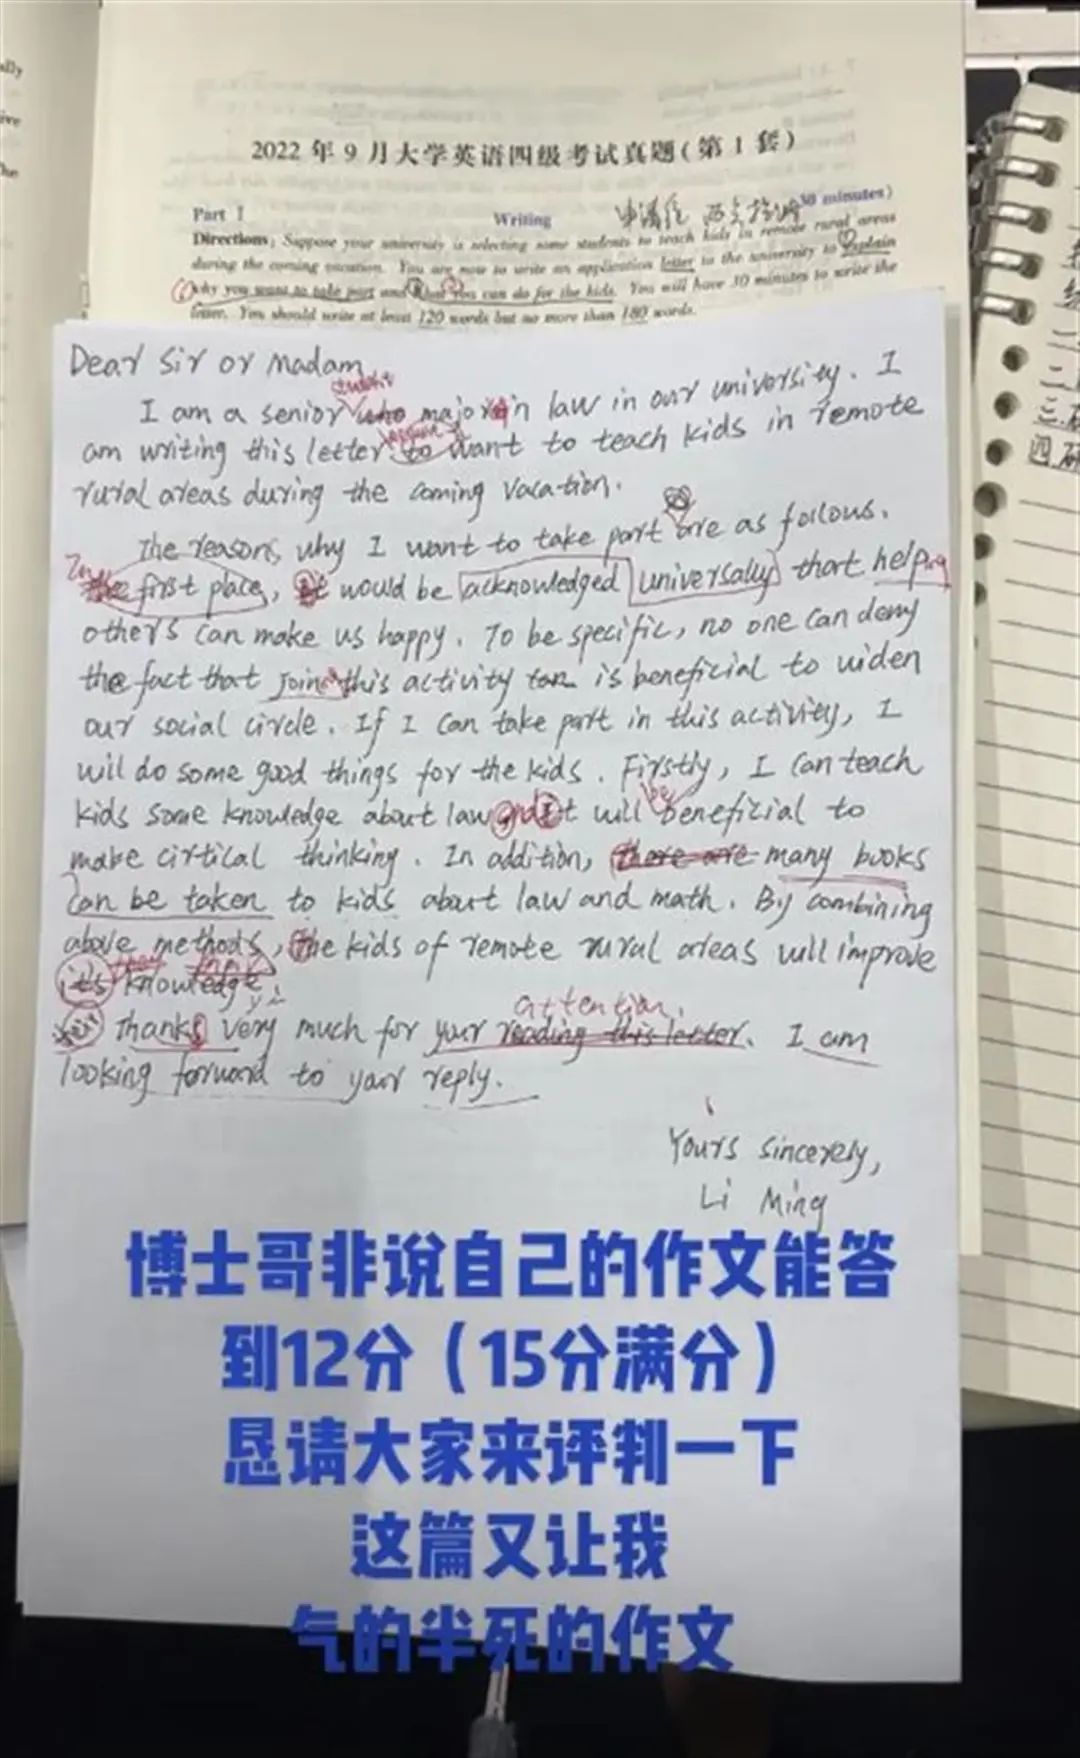 2022年9月大学英语四级考试真题(第1套)
Part I Writing 申请信 30 minutes)
Directions: Suppose your university is selecting some students to teach kids in remote rural areas
during the coming vacation. You are now to write an application letter to the university to explain
why you want to take part and what you can do for the kids. You will have 30 minutes to write the
letter. You should write at least 120 words but no more than 180 words.
Dear Sir or Madam
student
I am a senior who major in law in our university. I
am writing this letter to want to teach kids in remote
rural areas during the coming vacation.
The reasons why I want to take part are as follows.
In the first place, it would be acknowledged universally that helping
others can make us happy. To be specific, no one can deny
the fact that joining this activity is beneficial to widen
our social circle. If I can take part in this activity, I
wil do some good things for the kids. Firstly, I can teach
be
kids some knowledge about law and it will beneficial to
make cirtical thinking. In addition, there are many books
can be taken to kids about law and math. By combining
above methods, the kids of remote rural areas will improve
their
it's knowledge.
attention.
Thanks very much for your reading this letter. I am
looking forward to your reply.
Yours sincerely,
Li Ming
博士哥非说自己的作文能答
到12分（15分满分）
恳请大家来评判一下
这篇又让我
气的半死的作文